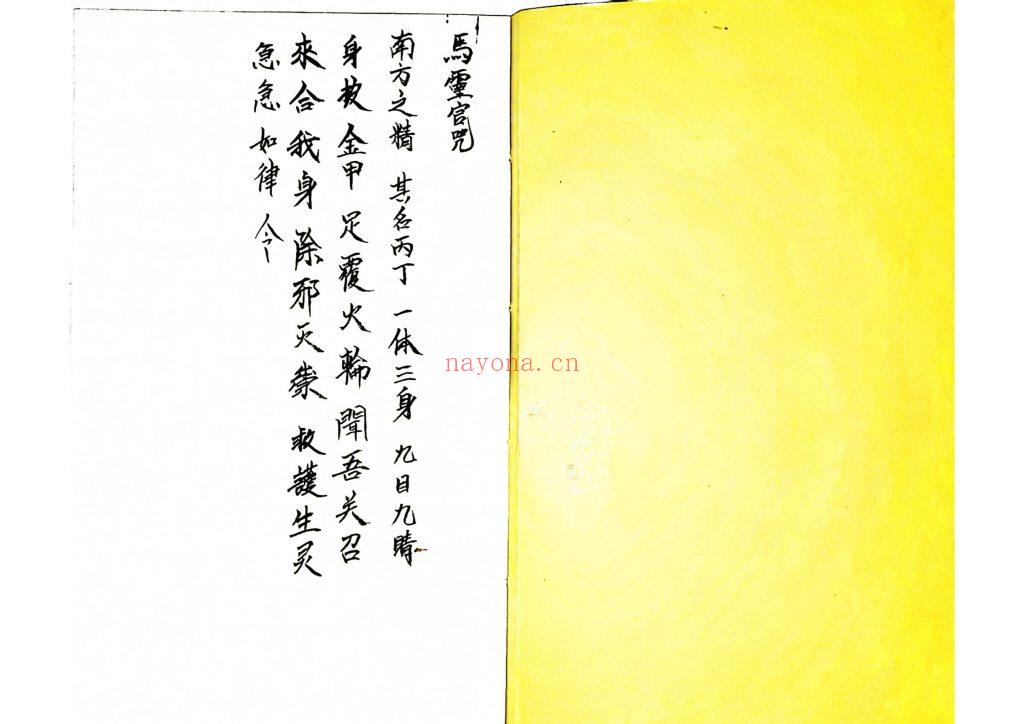 馬靈官咒
南方之精 其名丙丁 一体三身 九目九睛
身披金甲 足覆火輪 聞吾关召
來合我身 除邪灭祟 救護生灵
急急如律令
nayona.cn